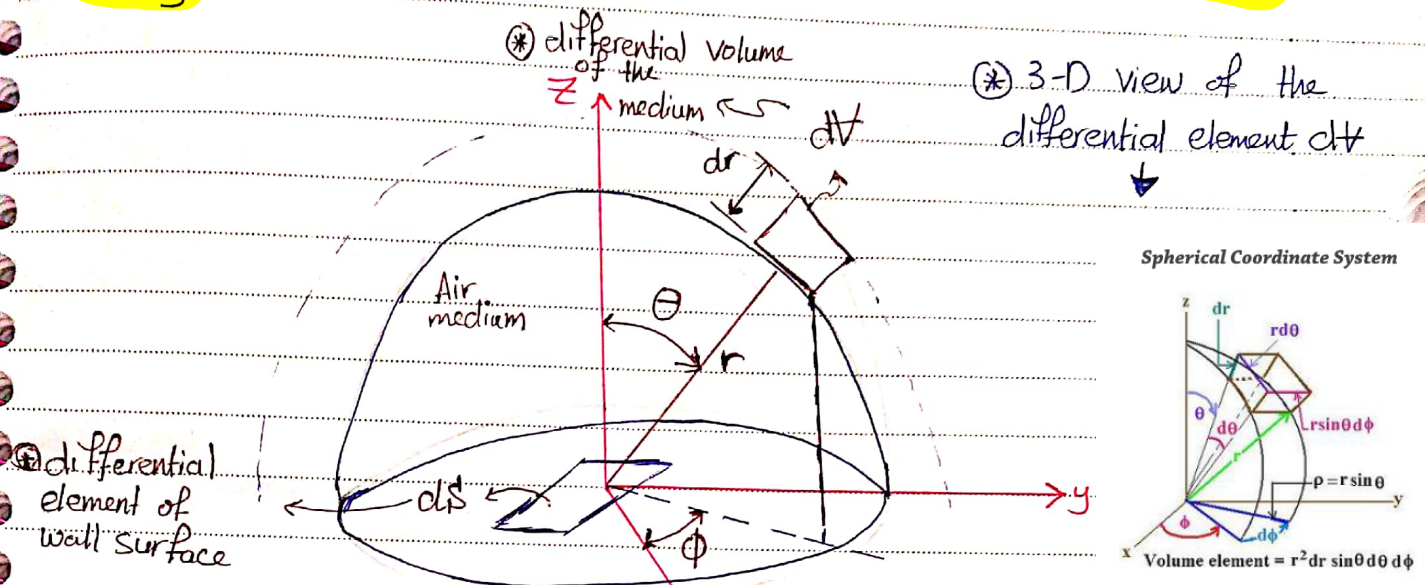 ⊛ differential volume
of the
medium
Z
⊛ 3-D view of the
differential element dV
dV
dr
Air
medium
θ
r
⊛ differential
element of
wall surface
dS
y
ϕ
Spherical Coordinate System
z
dr
rdθ
θ
dθ
rsinθdϕ
r
ρ = r sin θ
y
ϕ
dϕ
x
Volume element = r²dr sinθdθ dϕ